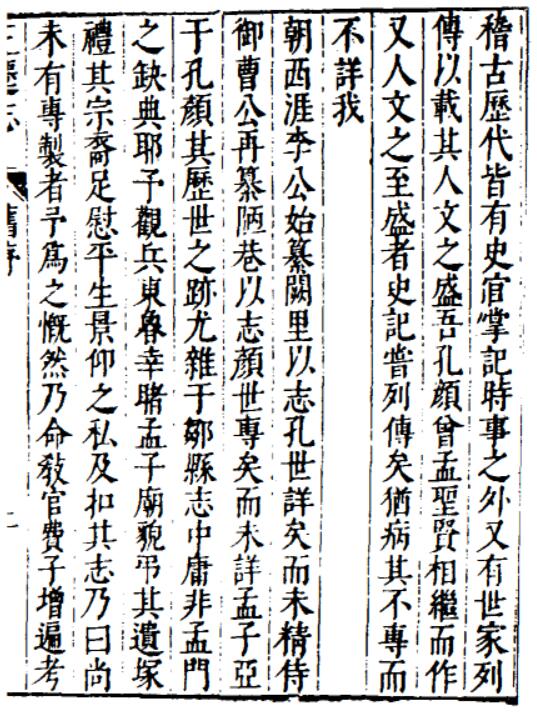 稽古歷代皆有史官掌記時事之外又有世家列
傳以載其人文之盛吾孔顏曾孟聖賢相繼而作
又人文之至盛者史記嘗列傳矣猶病其不專而
不詳我
朝西涯李公始纂闕里以志孔世詳矣而未精侍
御曹公再纂陋巷以志顏世專矣而未詳孟子亞
于孔顏其歷世之跡尤雜于鄒縣志中庸非孟門
之缺典耶予觀兵東魯幸睹孟子廟貌弔其遺塚
禮其宗裔足慰平生景仰之私及扣其志乃曰尚
未有專製者予爲之慨然乃命敎官費子增遍考
三遷志 舊序 一